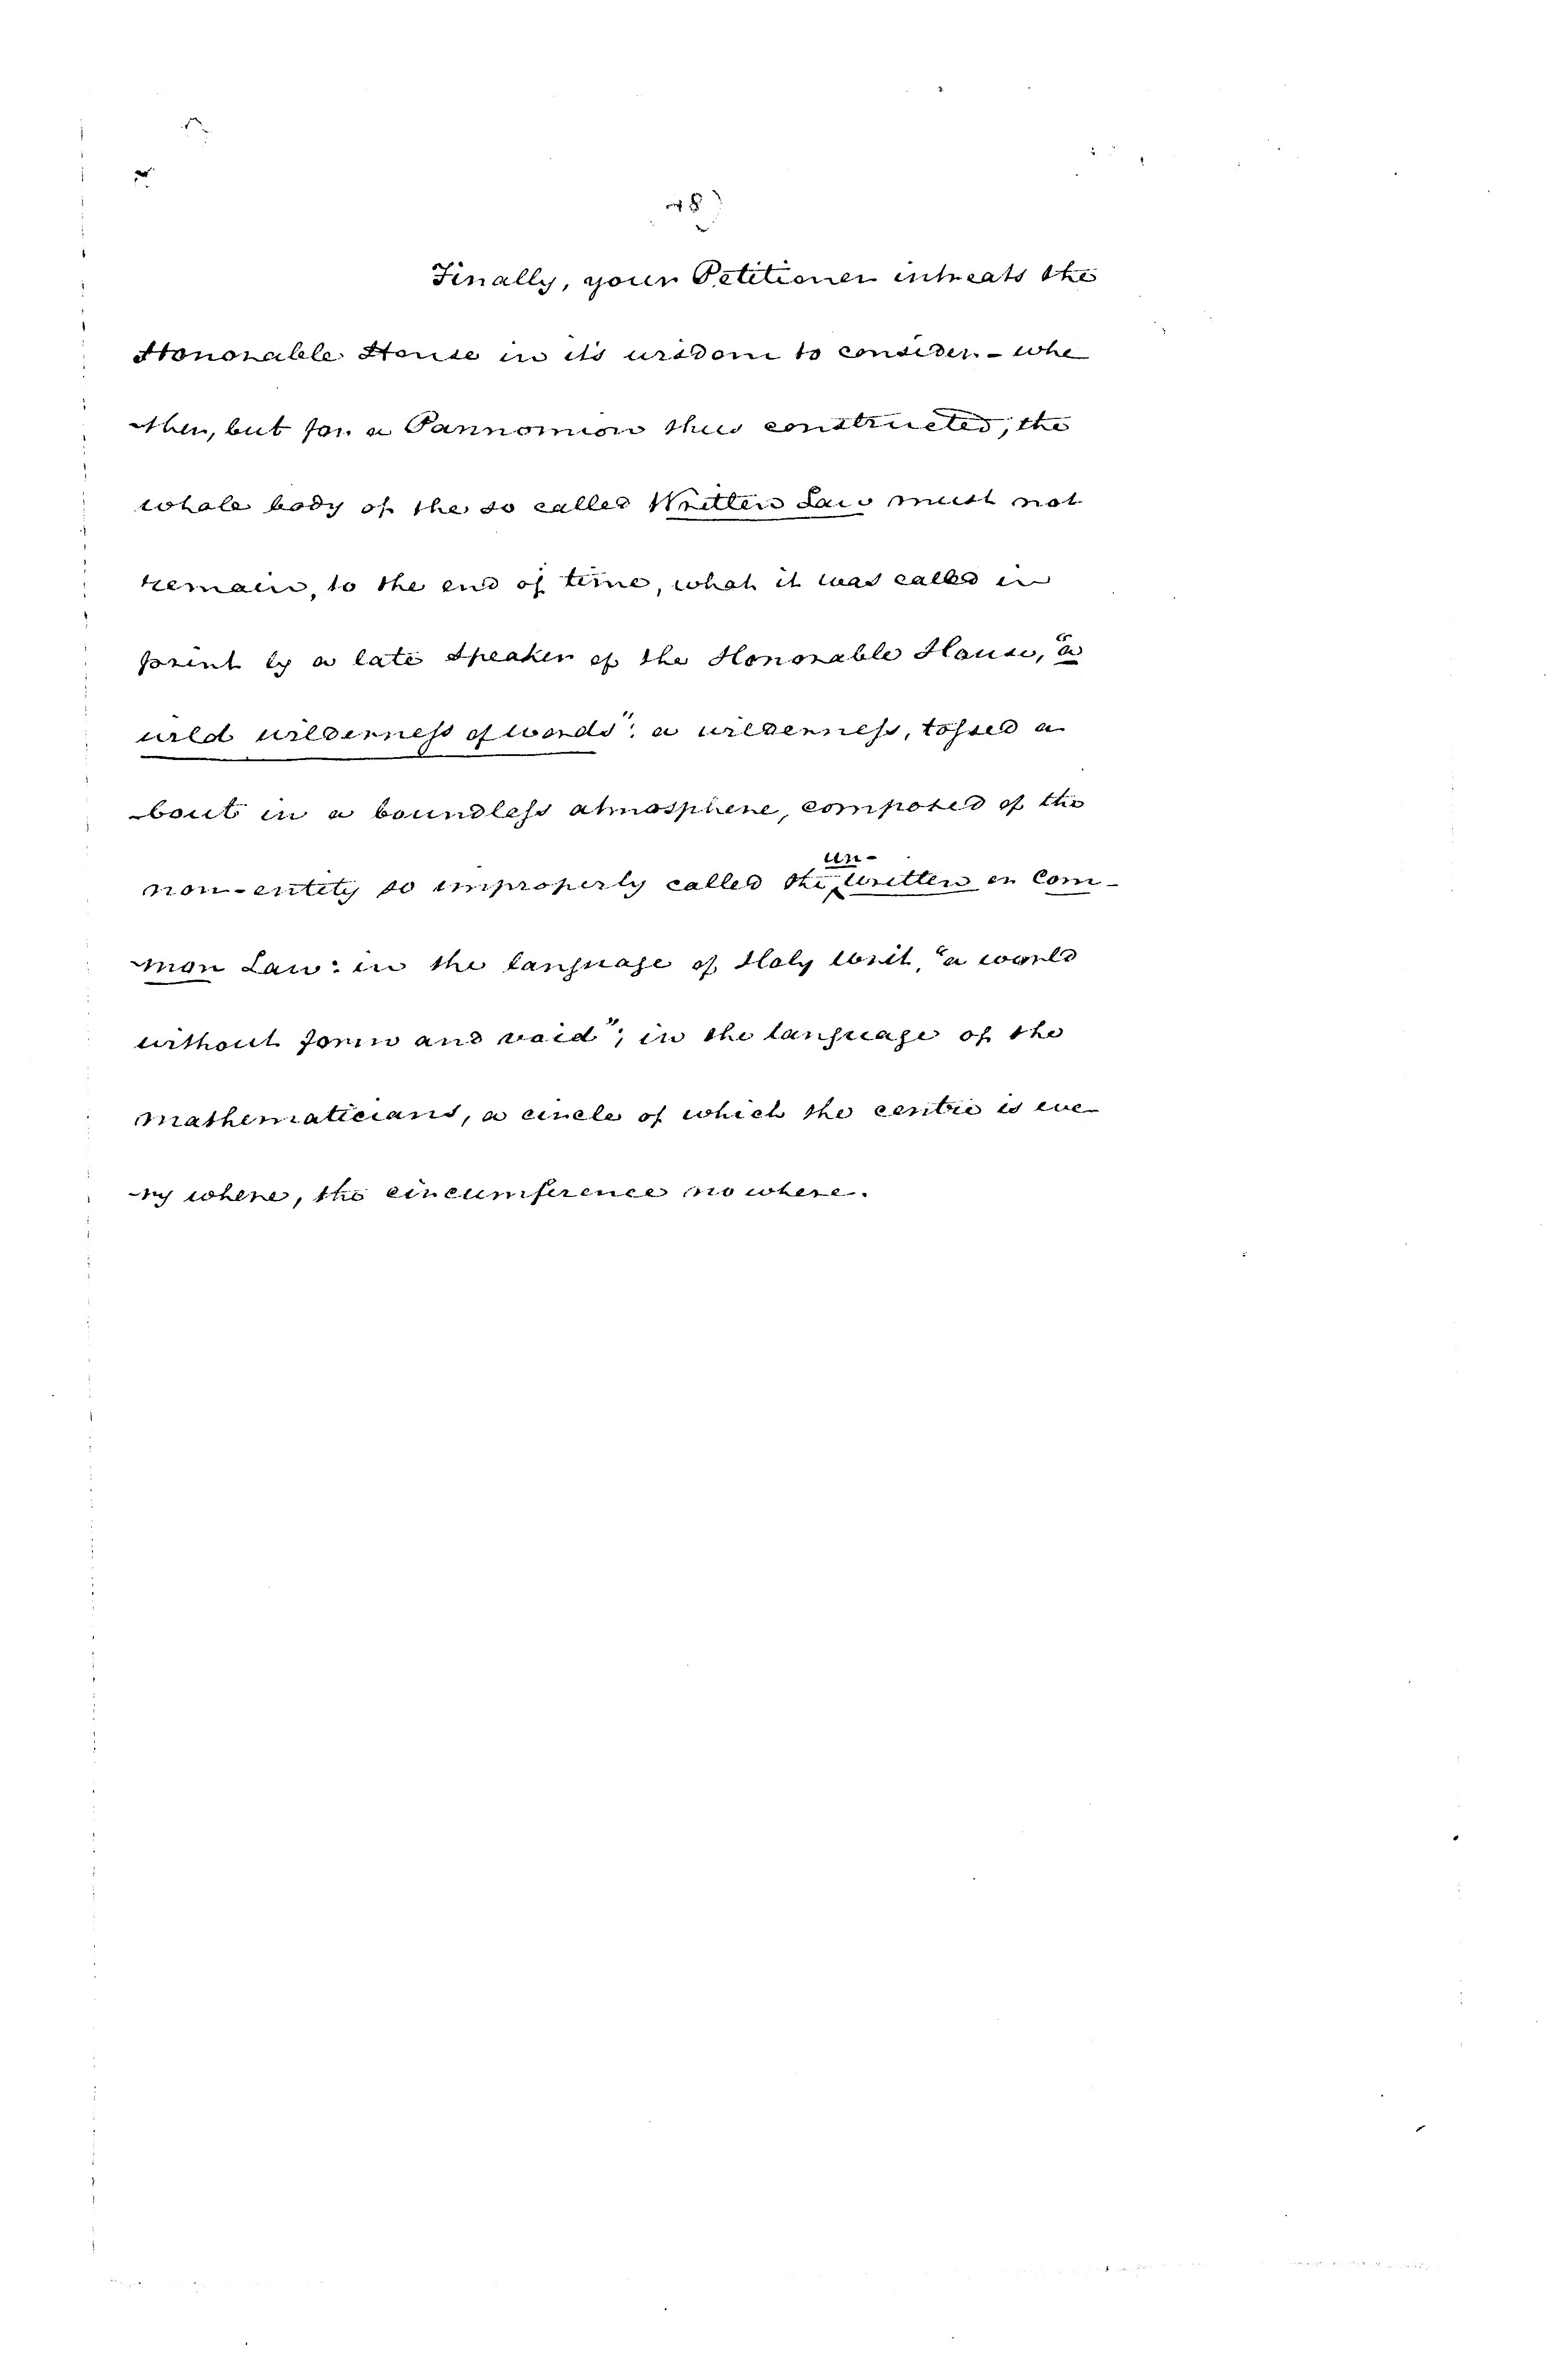 48)
Finally, your Petitioner intreats the
Honorable House in its wisdom to consider - whe
ther, but for a Pannomion thus constructed, the
whole body of the so called Written Law must not
remain, to the end of time, what it was called in
print by a late Speaker of the Honorable House, "a
wild wilderness of words": a wilderness, tossed a
bout in a boundless atmosphere, composed of the
un-
non-entity so improperly called the written or Com-
mon Law: in the language of Holy Writ, "a world
without form and void"; in the language of the
mathematicians, a circle of which the centre is eve
ry where, the circumference no where.